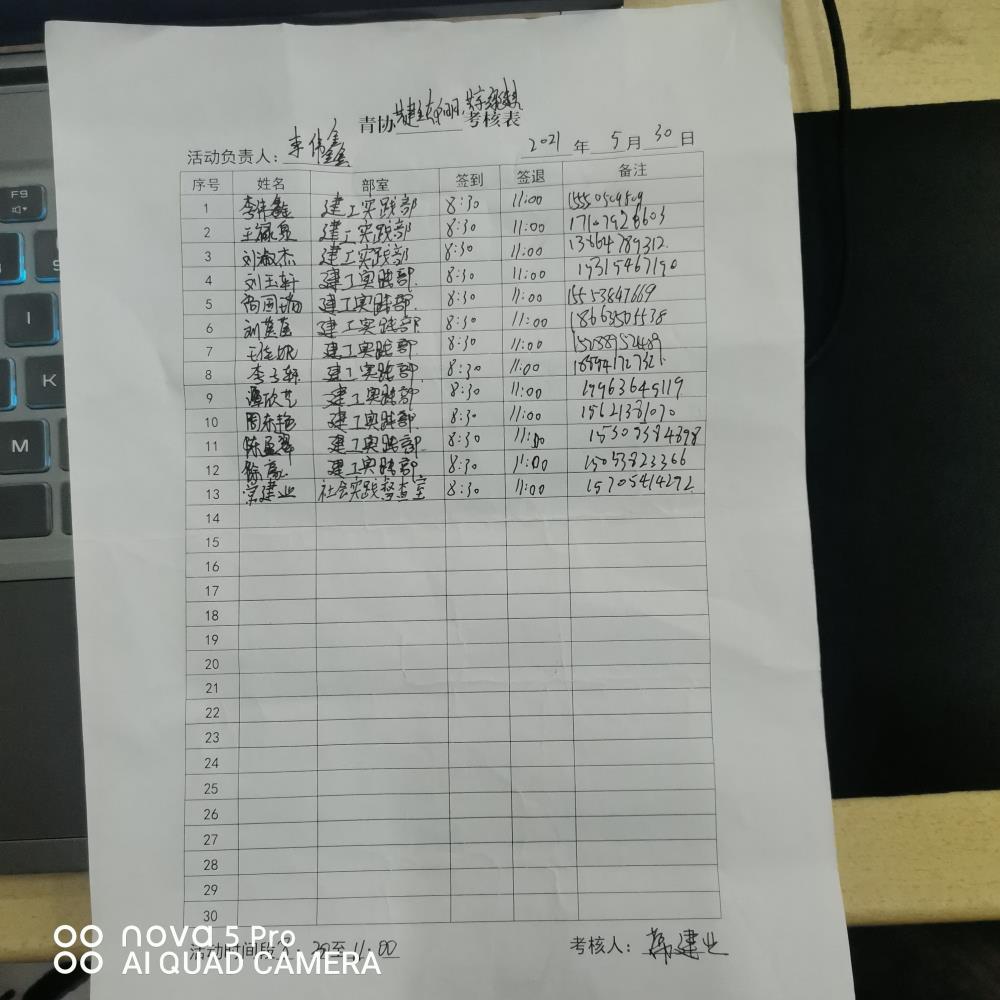 青协 考核表
活动负责人：李伟鑫 2021年 5月 30日
序号 姓名 部室 签到 签退 备注
1 李伟鑫 建工实践部 8:30 11:00
2 建工实践部 8:30 11:00 17107928603
3 刘淑杰 建工实践部 8:30 11:00 13864789312
4 刘玉轩 建工实践部 8:30 11:00
5 尚国瑞 建工实践部 8:30 11:00 15553847669
6 建工实践部 8:30 11:00 18663505538
7 建工实践部 8:30 11:00
8 李子轩 建工实践部 8:30 11:00
9 建工实践部 8:30 11:00 17963645119
10 周东艳 建工实践部 8:30 11:00 15621381070
11 建工实践部 8:30 11:00
12 徐高 建工实践部 8:30 11:00 15053823366
13 常建业 社会实践督查室 8:30 11:00 15705414272
14
15
16
17
18
19
20
21
22
23
24
25
26
27
28
29
30
活动时间段 30至11:00 考核人： 常建业
nova 5 Pro
AI QUAD CAMERA
F9
I
K
M